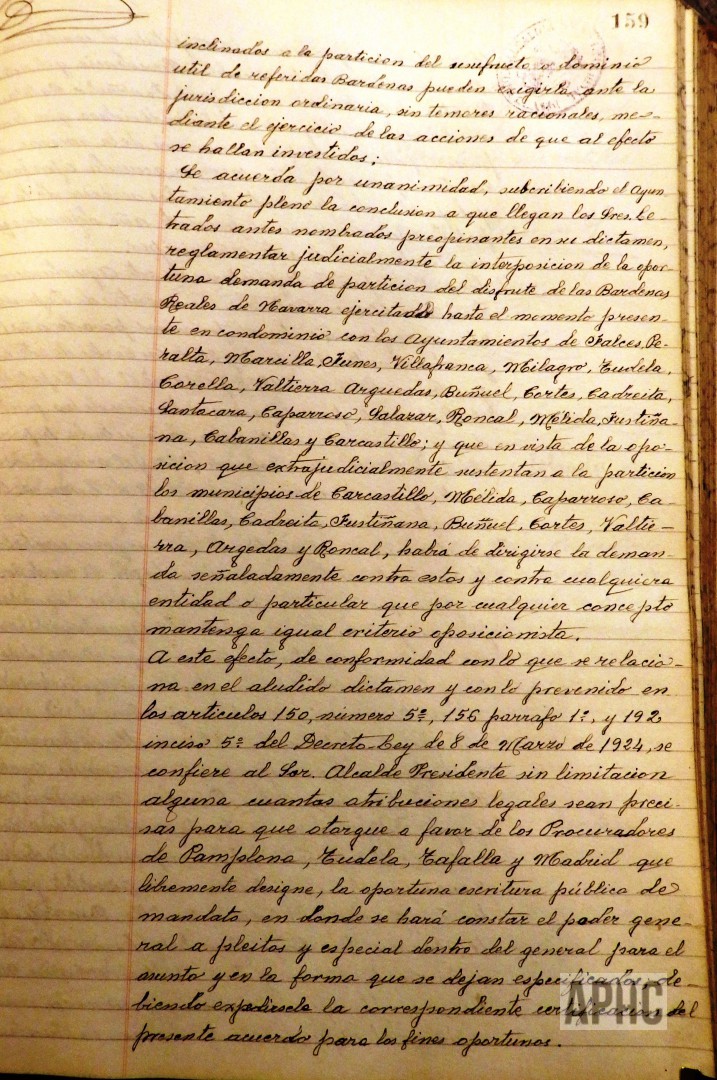 159
inclinados a la particion del usufructo o dominio
util de referidas Bardenas pueden exigirla ante la
jurisdiccion ordinaria, sin temores racionales, me-
diante el ejercicio de las acciones de que al efecto
se hallan investidos;
Se acuerda por unanimidad, subcribiendo el Ayun-
tamiento pleno la conclusion a que llegan los Sres. Le-
trados antes nombrados preopinantes en su dictamen,
reglamentar judicialmente la interposicion de la opor-
tuna demanda de particion del disfrute de las Bardenas
Reales de Navarra ejercitado hasta el momento presen-
te en condominio con los Ayuntamientos de Falces, Pe-
ralta, Marcilla, Funes, Villafranca, Milagro, Tudela,
Corella, Valtierra Arguedas, Buñuel, Cortes, Cadreita,
Santacara, Caparroso, Salazar, Roncal, Mélida, Fustiña-
na, Cabanillas y Carcastillo; y que en vista de la opo-
sicion que extrajudicialmente sustentan a la particion
los municipios de Carcastillo, Mélida, Caparroso, Ca-
banillas, Cadreita, Fustiñana, Buñuel, Cortes, Valtie-
rra, Argedas y Roncal, habrá de dirigirse la deman-
da señaladamente contra estos y contra cualquiera
entidad o particular que por cualquier concepto
mantenga igual criterio oposicionista.
A este efecto, de conformidad con lo que se relacio-
na en el aludido dictamen y con lo prevenido en
los articulos 150, número 5º, 156 parrafo 1º, y 192
inciso 5º del Decreto-Ley de 8 de Marzo de 1924, se
confiere al Sor. Alcalde Presidente sin limitacion
alguna cuantas atribuciones legales sean preci-
sas para que otorgue a favor de los Procuradores
de Pamplona, Tudela, Tafalla y Madrid que
libremente designe, la oportuna escritura pública de
mandato, en donde se hará constar el poder gene-
ral a pleitos y especial dentro del general para el
asunto y en la forma que se dejan especificados, de-
biendo expedirsele la correspondiente certificacion del
presente acuerdo para los fines oportunos.
APHC